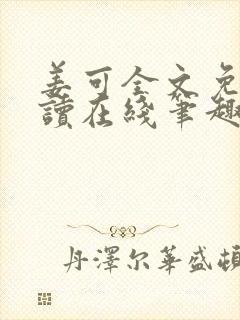 姜可全文免
讀在綫筆趣
丹澤尔華盛頓